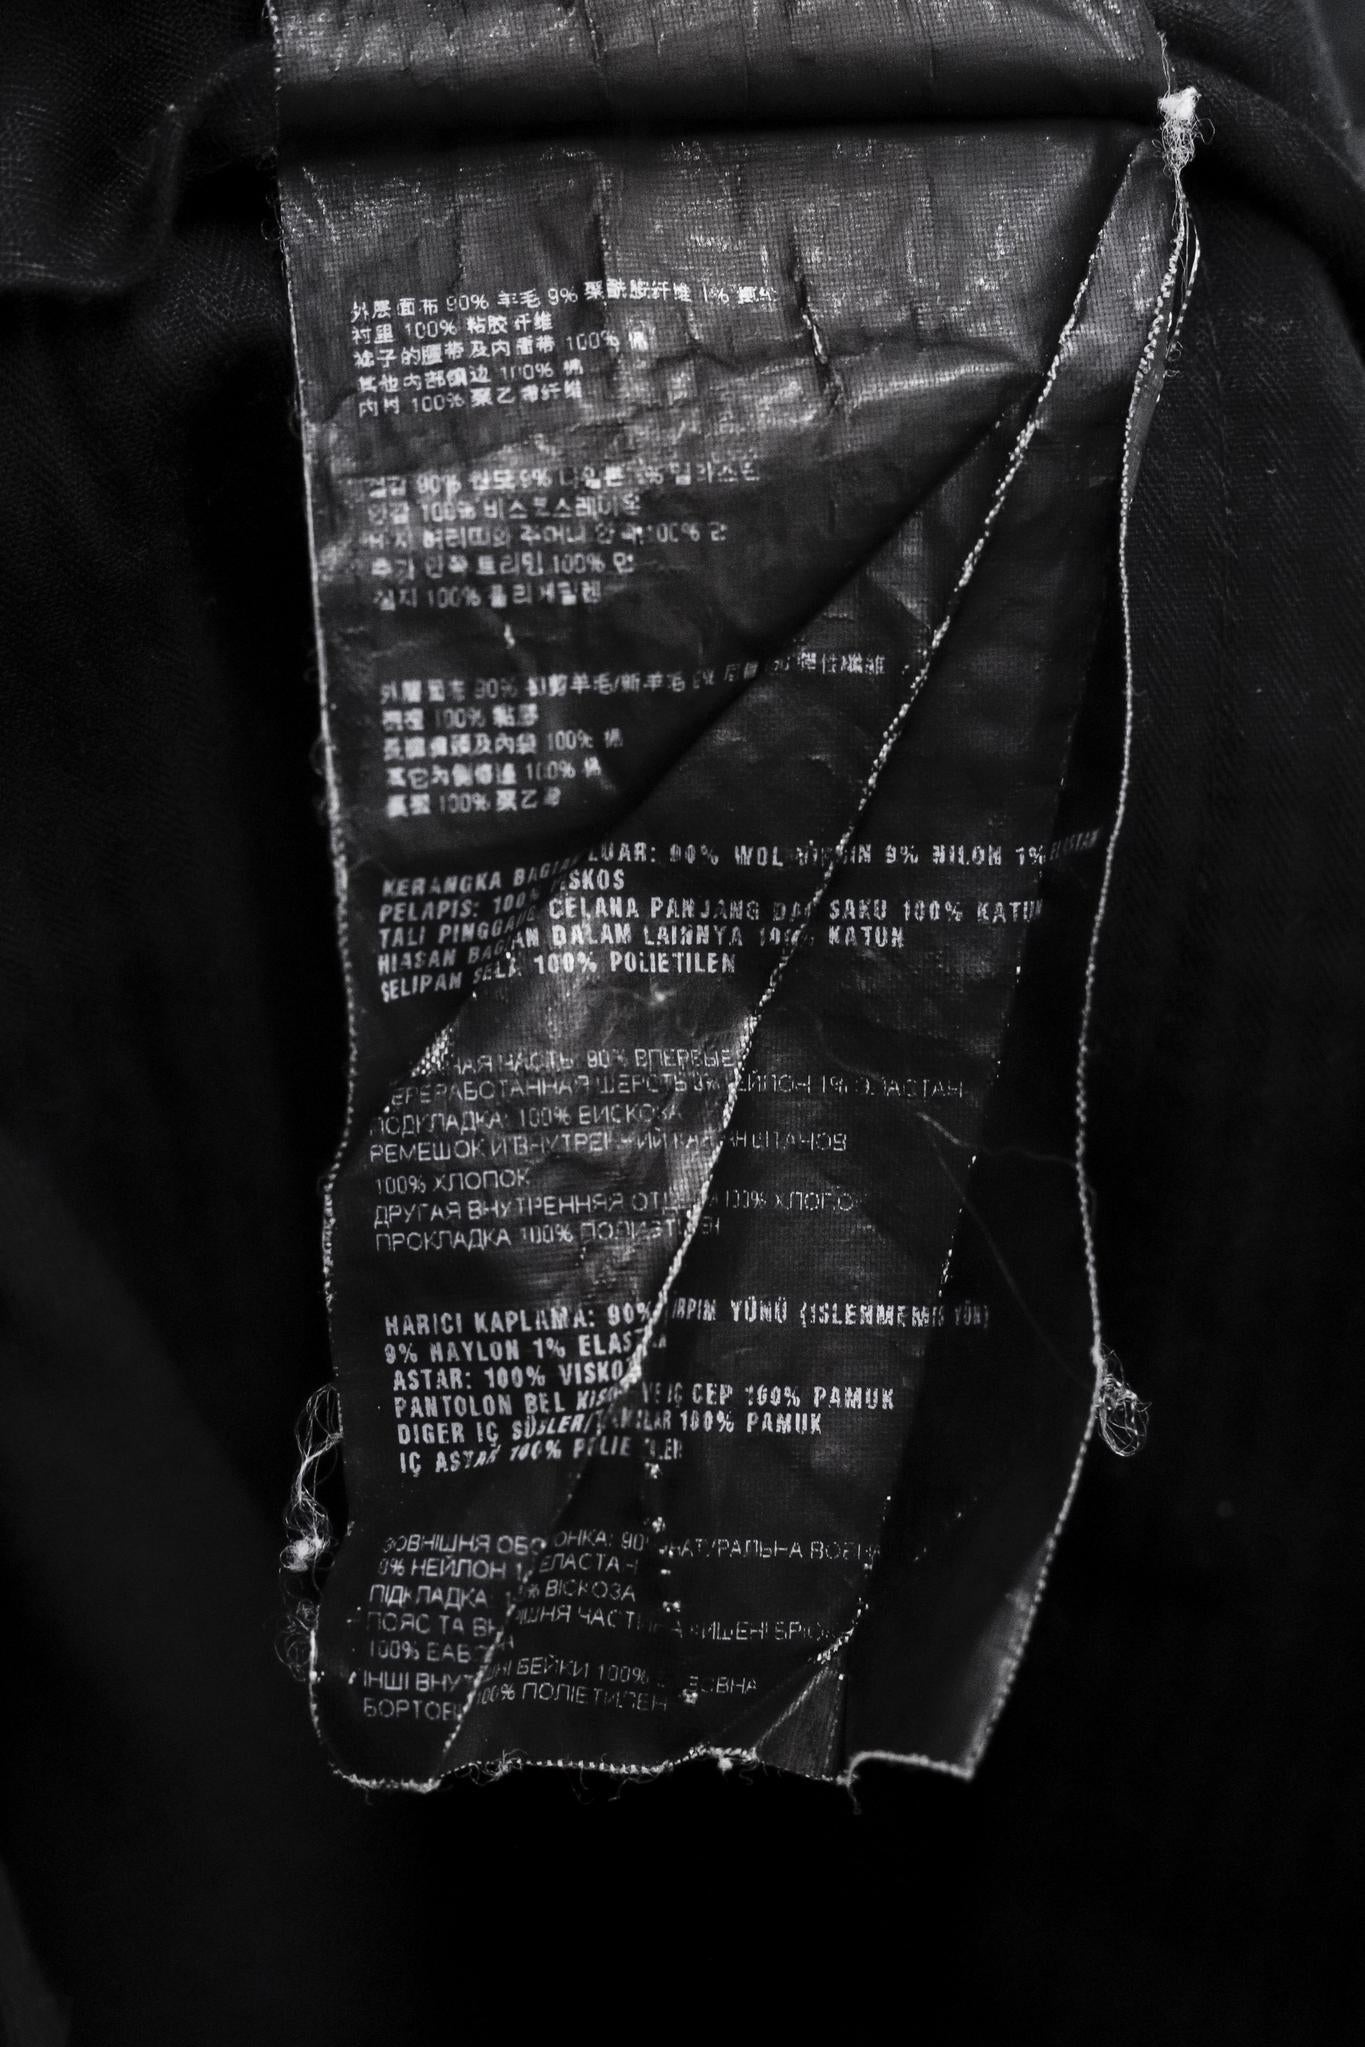 外层面布 90% 羊毛 9% 聚酰胺纤维 1%
衬里 100% 粘胶纤维
裤子的腰带及内口袋 100% 棉
其他内部镶边 100% 棉
内衬 100% 聚乙烯纤维
겉감 90% 9% 나일론 1%
안감 100% 비스코스레이온
허리띠와 주머니 안쪽 100%
추가 안쪽 트리밍 100% 면
심지 100% 폴리에틸렌
外層面布 90% 初剪羊毛/新羊毛 9% 彈性纖維
裡 100% 黏膠
及內袋 100% 棉
其它內側 100% 棉
100% 聚乙烯
KERANGKA BAGIAN LUAR: 90% WOL VIRGIN 9% NILON 1% ELASTAN
PELAPIS: 100% VISKOS
TALI PINGGANG CELANA PANJANG DAN SAKU 100% KATUN
HIASAN BAGIAN DALAM LAINNYA 100% KATUN
SELIPAN SELA 100% POLIETILEN
ЧАСТЬ: 90% ВПЕРВЫЕ
ПЕРЕРАБОТАННАЯ ШЕРСТЬ 9% НЕЙЛОН 1% ЭЛАСТАН
ПОДКЛАДКА: 100% ВИСКОЗА
РЕМЕШОК И ВНУТРЕННИЙ КАРМАН ШТАНОВ
100% ХЛОПОК
ДРУГАЯ ВНУТРЕННЯЯ 100% ХЛОПОК
ПРОКЛАДКА 100% ПОЛИЭТИЛЕН
HARICI KAPLAMA: 90% KIRPIM YÜNÜ (ISLENMEMIS YÜN)
9% NAYLON 1% ELASTAN
ASTAR: 100% VISKOZ
PANTOLON BEL VE IÇ CEP 100% PAMUK
DIGER IÇ 100% PAMUK
IÇ ASTAR 100% POLIETILEN
ЗОВНІШНЯ ОБОЛОНКА: 90% НАТУРАЛЬНА ВОВНА
9% НЕЙЛОН 1% ЕЛАСТАН
ПІДКЛАДКА: 100% ВІСКОЗА
ПОЯС ТА ВНУТРІШНЯ ЧАСТИНА КИШЕНІ БРЮК
100%
ІНШІ ВНУТРІШНІ БЕЙКИ 100%
100% ПОЛІЕТИЛЕН